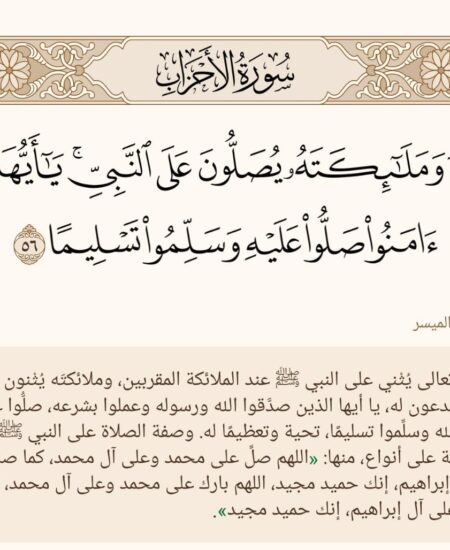 سُورَةُ الأَحْزَابِ
وَمَلَـٰٓئِكَتَهُۥ يُصَلُّونَ عَلَى ٱلنَّبِيِّ ۚ يَـٰٓأَيُّهَا
ءَامَنُوا۟ صَلُّوا۟ عَلَيْهِ وَسَلِّمُوا۟ تَسْلِيمًا ٥٦
الميسر
تعالى يُثْني على النبي ﷺ عند الملائكة المقربين، وملائكتَه يُثْنون
دعون له، يا أيها الذين صدَّقوا الله ورسوله وعملوا بشرعه، صلُّوا
لله وسلِّموا تسليمًا، تحية وتعظيمًا له. وصفة الصلاة على النبي ﷺ
ة على أنواع، منها: «اللهم صلِّ على محمد وعلى آل محمد، كما صـ
إبراهيم، إنك حميد مجيد، اللهم بارك على محمد وعلى آل محمد،
لى آل إبراهيم، إنك حميد مجيد».